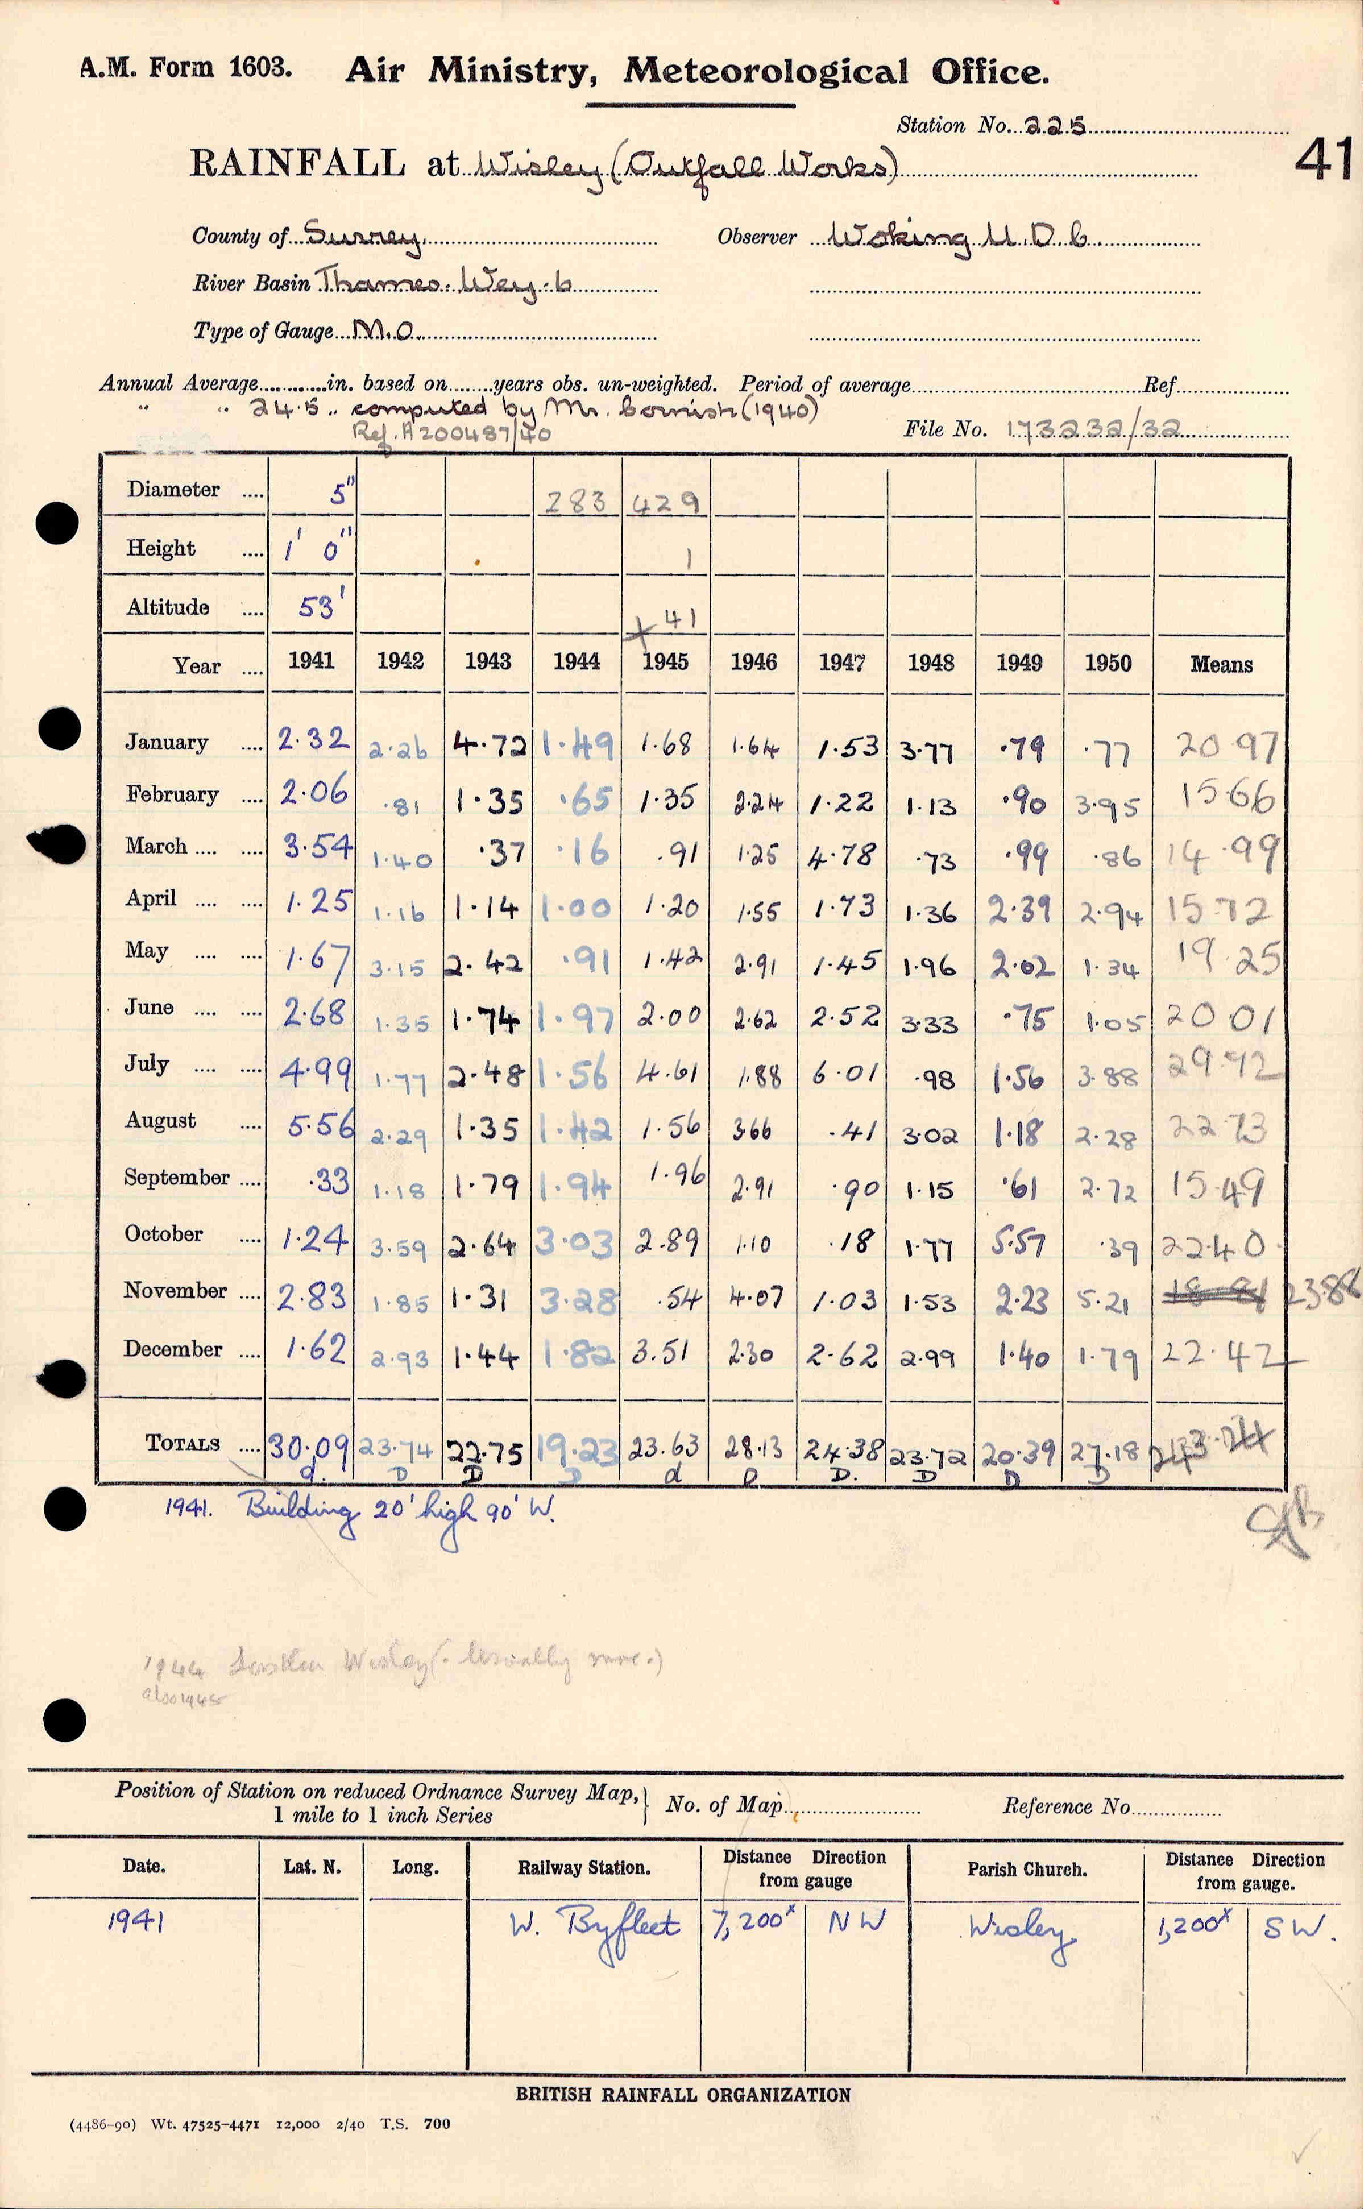 A.M. Form 1603. Air Ministry, Meteorological Office.
Station No. 225
41
RAINFALL at Wisley (Outfall Works)
County of Surrey Observer Woking U.D.C.
River Basin Thames. Wey. b
Type of Gauge M.O.
Annual Average in. based on years obs. un-weighted. Period of average Ref.
" " 24.5 " computed by Mr. Cornish (1940)
Ref. A200487/40
File No. 173232/32
Diameter 5" 283 429
Height 1' 0" 1
Altitude 53' +41
Year 1941 1942 1943 1944 1945 1946 1947 1948 1949 1950 Means
January 2.32 2.26 4.72 1.49 1.68 1.64 1.53 3.77 .79 .77 20.97
February 2.06 .81 1.35 .65 1.35 2.24 1.22 1.13 .90 3.95 15.66
March 3.54 1.40 .37 .16 .91 1.25 4.78 .73 .99 .86 14.99
April 1.25 1.16 1.14 1.00 1.20 1.55 1.73 1.36 2.39 2.94 15.72
May 1.67 3.15 2.42 .91 1.42 2.91 1.45 1.96 2.02 1.34 19.25
June 2.68 1.35 1.74 1.97 2.00 2.62 2.52 3.33 .75 1.05 20.01
July 4.99 1.77 2.48 1.56 4.61 1.88 6.01 .98 1.56 3.88 29.72
August 5.56 2.29 1.35 1.42 1.56 3.66 .41 3.02 1.18 2.28 22.73
September .33 1.18 1.79 1.94 1.96 2.91 .90 1.15 .61 2.72 15.49
October 1.24 3.59 2.64 3.03 2.89 1.10 .18 1.77 5.57 .39 22.40
November 2.83 1.85 1.31 3.28 .54 4.07 1.03 1.53 2.23 5.21 18.81 23.88
December 1.62 2.93 1.44 1.82 3.51 2.30 2.62 2.99 1.40 1.79 22.42
TOTALS 30.09 23.74 22.75 19.23 23.63 28.13 24.38 23.72 20.39 27.18 243.24
d. D D D d D D. D D D
1941. Building 20' high 90' W.
1944 Wisley (. usually more.)
also 1945
Position of Station on reduced Ordnance Survey Map, 1 mile to 1 inch Series } No. of Map Reference No.
Date. Lat. N. Long. Railway Station. Distance Direction from gauge Parish Church. Distance Direction from gauge.
1941 W. Byfleet 7,200x NW Wisley 1,200x SW.
BRITISH RAINFALL ORGANIZATION
(4486-90) Wt. 47525-4471 12,000 2/40 T.S. 700